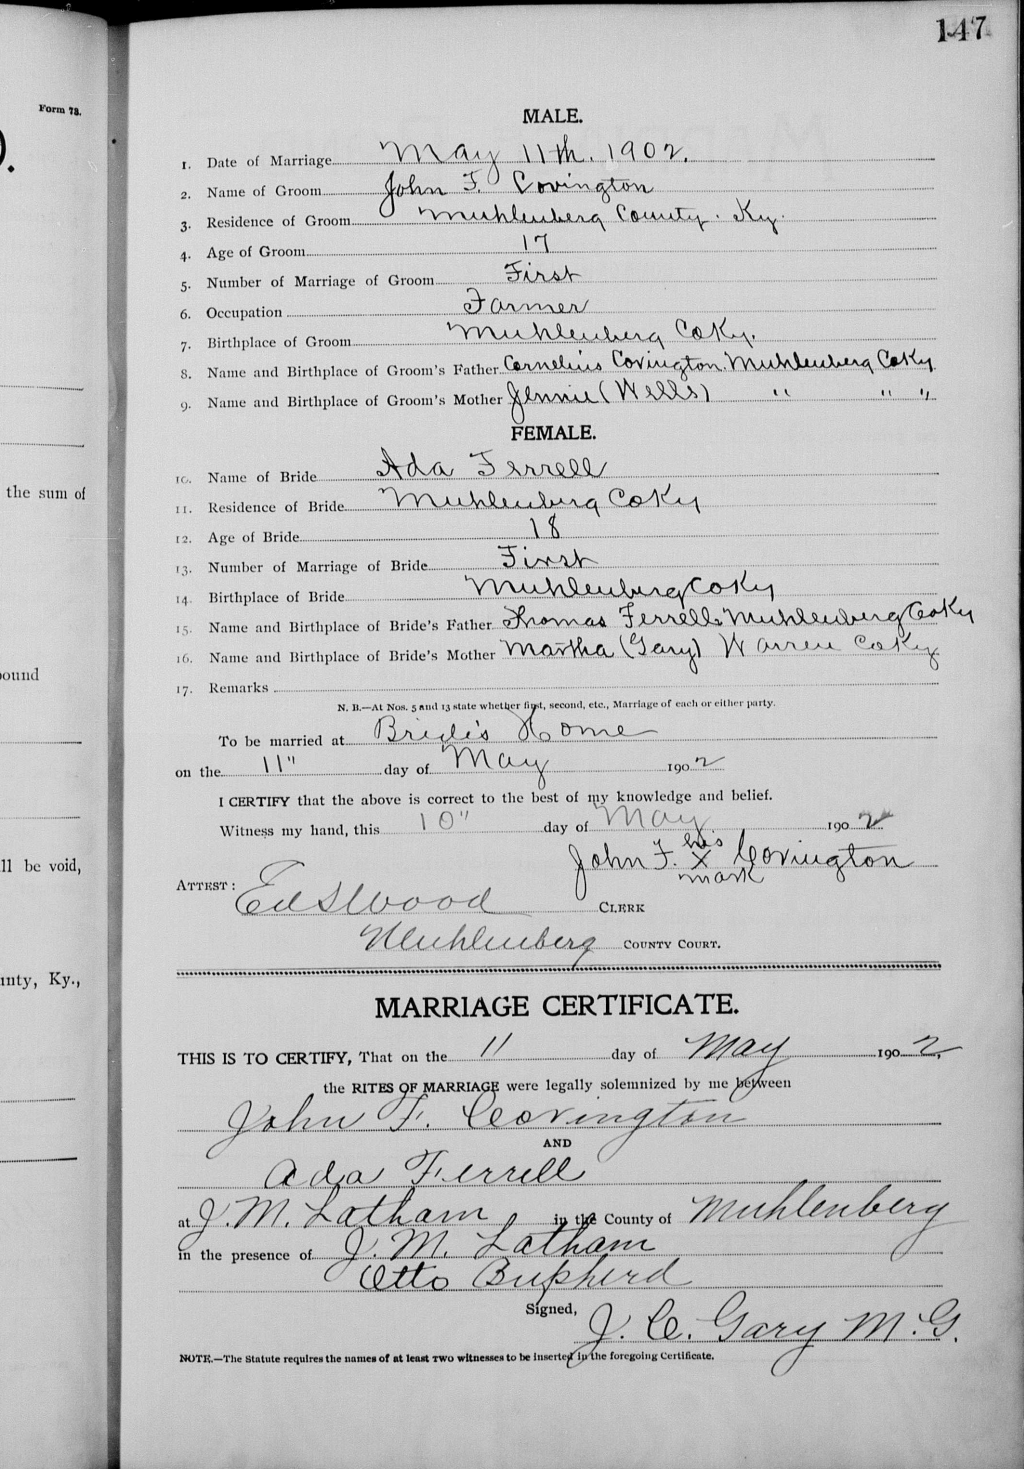 147
Form 78.
).
MALE.
1. Date of Marriage May 11th. 1902.
2. Name of Groom John F. Covington
3. Residence of Groom Muhlenberg County. Ky.
4. Age of Groom 17
5. Number of Marriage of Groom First
6. Occupation Farmer
7. Birthplace of Groom Muhlenberg Co Ky.
8. Name and Birthplace of Groom's Father Cornelius Covington. Muhlenberg Co Ky
9. Name and Birthplace of Groom's Mother Jennie (Wells) " " "
FEMALE.
10. Name of Bride Ada Ferrell
the sum of
11. Residence of Bride Muhlenberg Co Ky
12. Age of Bride 18
13. Number of Marriage of Bride First
14. Birthplace of Bride Muhlenberg Co Ky
15. Name and Birthplace of Bride's Father Thomas Ferrell Muhlenberg Co Ky
16. Name and Birthplace of Bride's Mother Martha (Gary) Warren Co Ky
ound
17. Remarks
N. B.—At Nos. 5 and 13 state whether first, second, etc., Marriage of each or either party.
To be married at Bride's Home
on the 11" day of May 1902
I CERTIFY that the above is correct to the best of my knowledge and belief.
Witness my hand, this 10" day of May 1902
his
John F. X Covington
mark
ll be void,
ATTEST: Ed S Wood CLERK
Muhlenberg COUNTY COURT.
unty, Ky.,
MARRIAGE CERTIFICATE.
THIS IS TO CERTIFY, That on the 11 day of May 1902,
the RITES OF MARRIAGE were legally solemnized by me between
John F. Covington
AND
Ada Ferrell
at J. M. Latham in the County of Muhlenberg
in the presence of J. M. Latham
Otto
Signed, J. C. Gary M. G.
NOTE.—The Statute requires the names of at least TWO witnesses to be inserted in the foregoing Certificate.